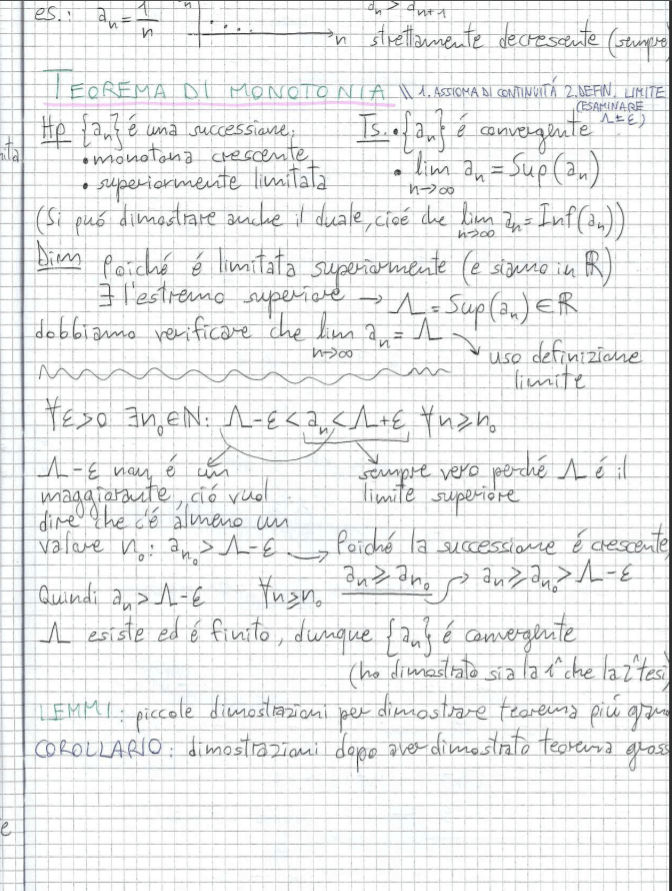 es.: aₙ = 1/n n n aₙ > aₙ₊₁
strettamente decrescente (sempre
TEOREMA DI MONOTONIA \\ 1. ASSIOMA DI CONTINUITÁ 2. DEFIN. LIMITE
(ESAMINARE Λ±ε)
Hp {aₙ} é una successione, Ts. • {aₙ} é convergente
• monotona crescente
• superiormente limitata • lim n→∞ aₙ = Sup(aₙ)
(Si puó dimostrare anche il duale, cioé che lim n→∞ aₙ = Inf(aₙ))
Dim Poiché é limitata superiormente (e siamo in ℝ)
∃ l'estremo superiore → Λ = Sup(aₙ) ∈ ℝ
dobbiamo verificare che lim n→∞ aₙ = Λ
uso definizione
limite
∀ε>0 ∃n₀∈ℕ: Λ-ε < aₙ < Λ+ε ∀n≥n₀
Λ-ε non é un
maggiorante, ció vuol
dire che c'é almeno un
valore n₀: aₙ₀ > Λ-ε
sempre vero perché Λ é il
limite superiore
Poiché la successione é crescente,
aₙ ≥ aₙ₀ → aₙ ≥ aₙ₀ > Λ-ε
Quindi aₙ > Λ-ε ∀n≥n₀
Λ esiste ed é finito, dunque {aₙ} é convergente
(ho dimostrato sia la 1ª che la 2ª tesi)
LEMMI: piccole dimostrazioni per dimostrare teorema piú gran
COROLLARIO: dimostrazioni dopo aver dimostrato teorema gross
e